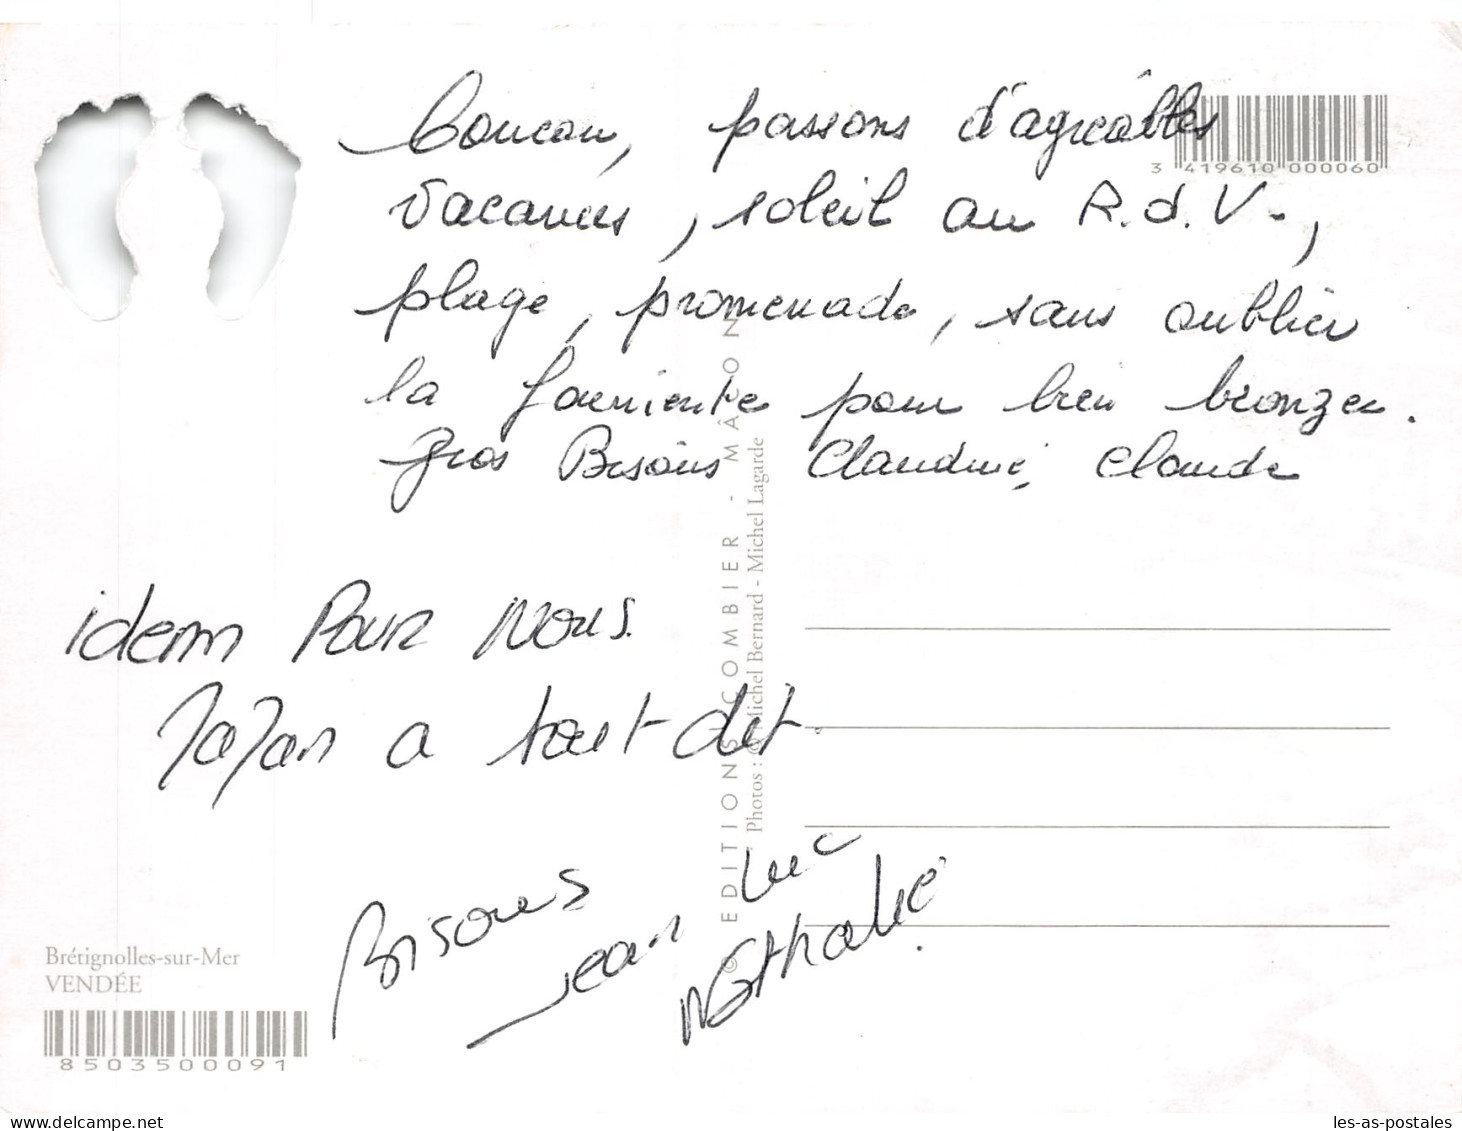 Coucou, passons d'agréables
3 419610 000060
vacances, soleil au R.d.V.,
plage, promenade, sans oublier
la farniente pour bien bronzer.
Gros Bisous Claudine, Claude
idem Pour Nous.
a tout dit.
Bisous Jean Luc
Nathalie
© EDITIONS COMBIER - MÂCON
Photos : © Michel Bernard - Michel Lagarde
Brétignolles-sur-Mer
VENDÉE
8503500091
delcampe.net
les-as-postales